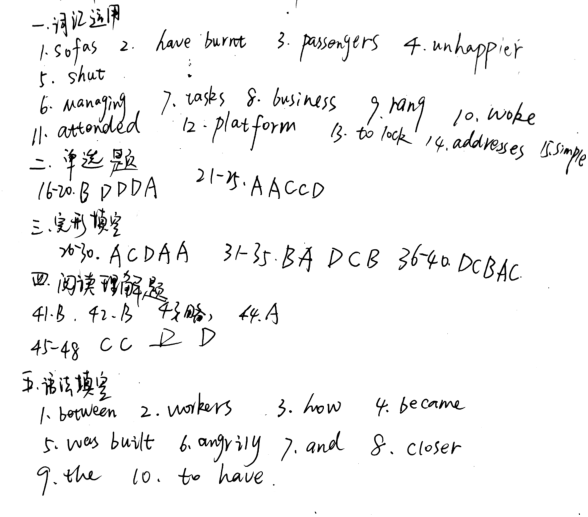 一.词汇运用
1. sofas 2. have burnt 3. passengers 4. unhappier
5. shut
6. managing 7. tasks 8. business 9. rang 10. woke
11. attended 12. platform 13. to lock 14. addresses 15. simple
二. 单选题
16-20. B D D D A 21-25. A A C C D
三. 完形填空
26-30. A C D A A 31-35. B A D C B 36-40. D C B A C
四. 阅读理解题
41. B. 42. B 43略, 44. A
45-48 C C D D
五. 语法填空
1. between 2. workers 3. how 4. became
5. was built 6. angrily 7. and 8. closer
9. the 10. to have.